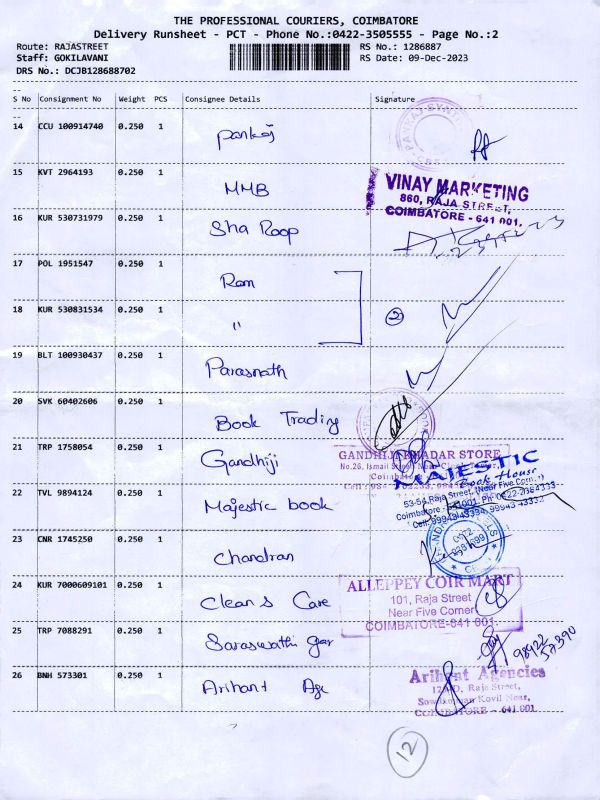 THE PROFESSIONAL COURIERS, COIMBATORE
Delivery Runsheet - PCT - Phone No.:0422-3505555 - Page No.:2
Route: RAJASTREET RS No.: 1286887
Staff: GOKILAVANI RS Date: 09-Dec-2023
DRS No.: DCJB128688702
S No Consignment No Weight PCS Consignee Details Signature
14 CCU 100914740 0.250 1 Pankaj
15 KVT 2964193 0.250 1 MMB
VINAY MARKETING
860, RAJA STREET,
COIMBATORE - 641 001.
16 KUR 530731979 0.250 1 Sha Roop
17 POL 1951547 0.250 1 Ram
18 KUR 530831534 0.250 1 " 2
19 BLT 100930437 0.250 1 Parasnath
20 SVK 60402606 0.250 1 Book Trading
21 TRP 1758054 0.250 1 Gandhiji
GANDHIJI KHADAR STORE
No.26, Ismail
22 TVL 9894124 0.250 1 Majestic book
MAJESTIC
Book House
53-54, Raja Street, (Near Five Corner)
Coimbatore - 641001. Ph: 0422-2384333
Cell: 99943 43334, 99943 43332
23 CNR 1745250 0.250 1 Chandran
24 KUR 7000609101 0.250 1 Clean & Care
ALLEPPEY COIR MART
101, Raja Street
Near Five Corner
COIMBATORE-641 001.
25 TRP 7088291 0.250 1 Saraswathi
98922
57390
26 BNH 573301 0.250 1 Arihant Age
Arihant Agencies
Raja Street,
Kovil Near,
COIMBATORE - 641 001
12